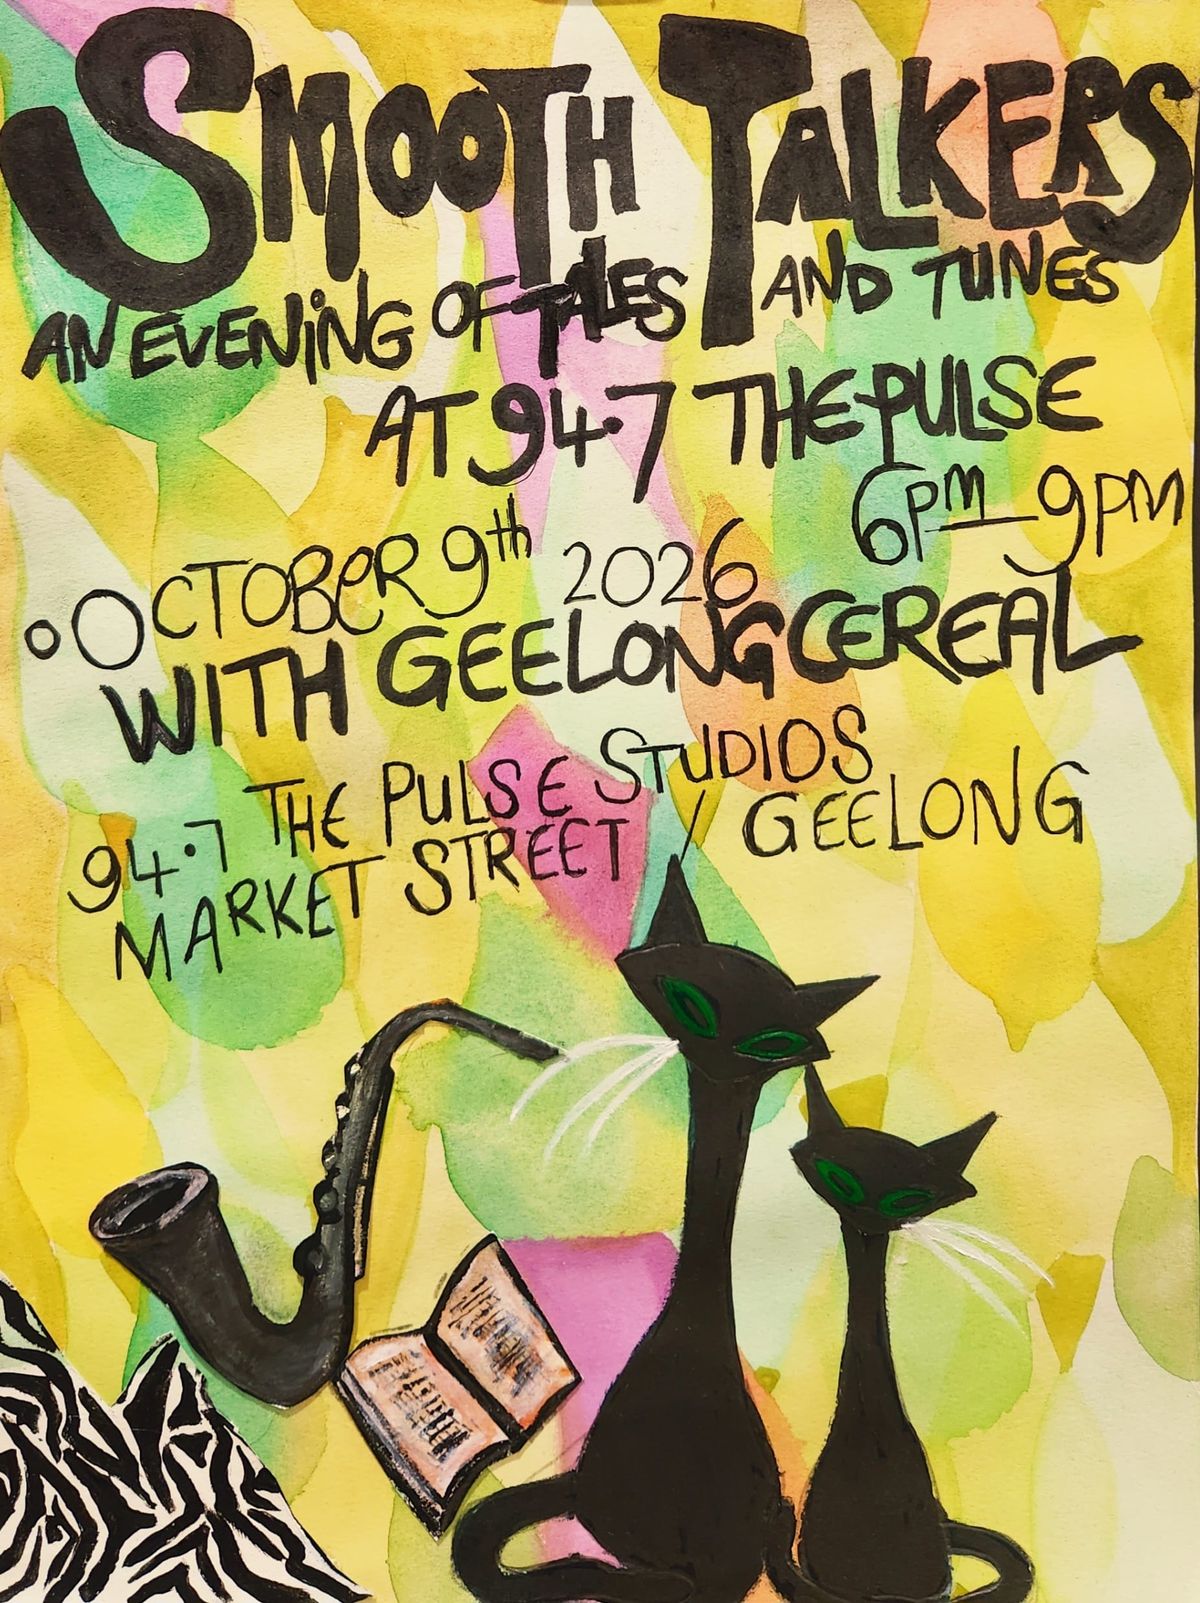 SMOOTH TALKERS
AN EVENING OF TALES AND TUNES
AT 94.7 THE PULSE
6PM - 9PM
OCTOBER 9th 2026
WITH GEELONG CEREAL
94.7 THE PULSE STUDIOS
MARKET STREET / GEELONG